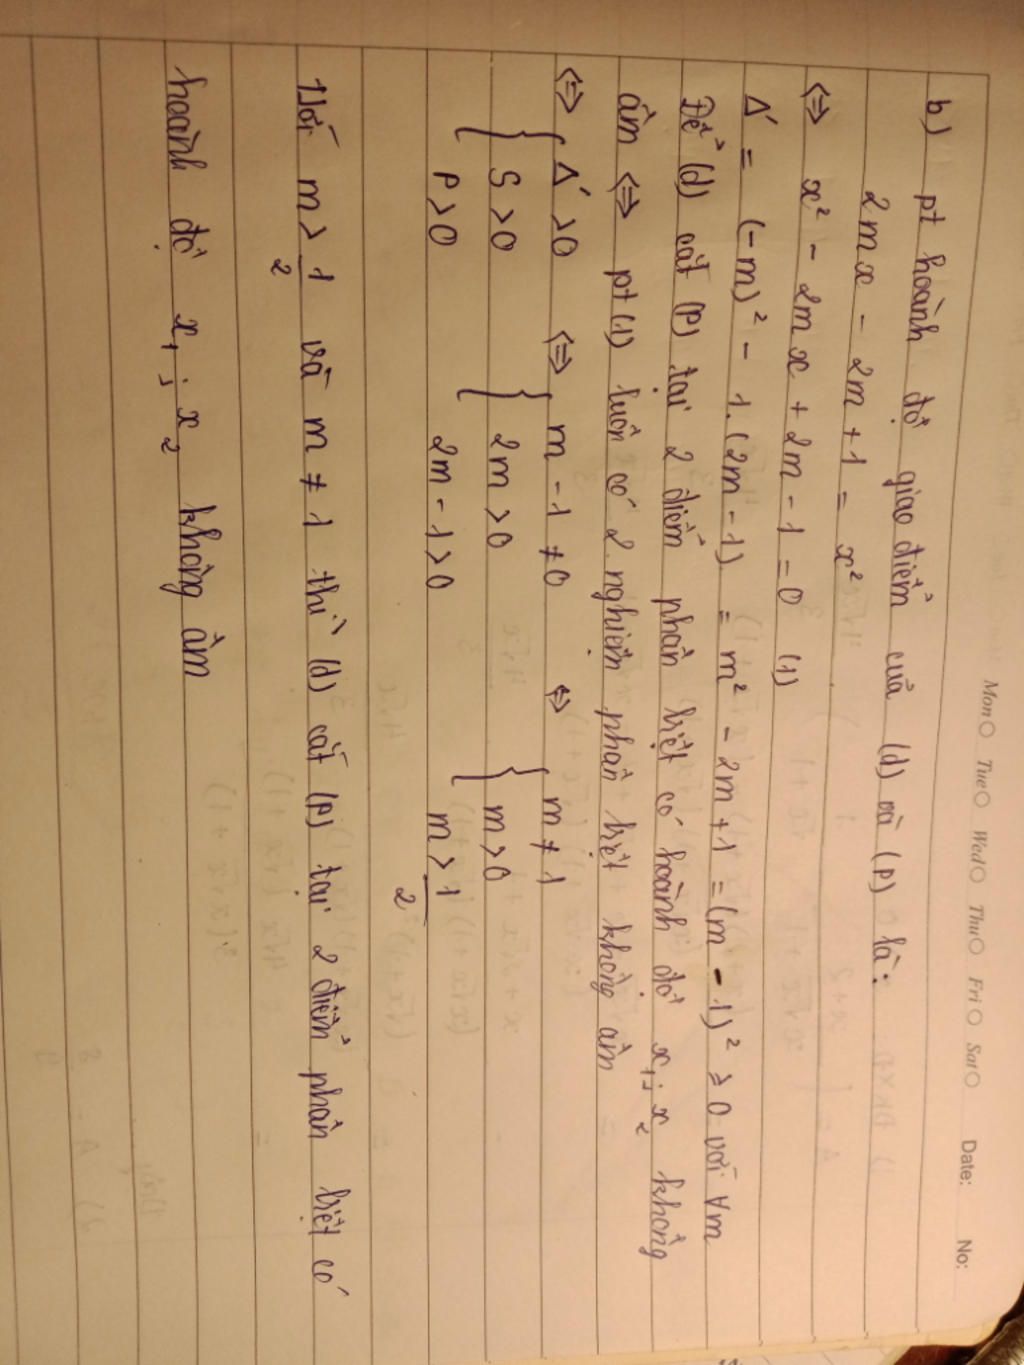 Mon Tue Wed Thu Fri Sat Date: No:
b) pt hoành độ giao điểm của (d) và (P) là:
2mx - 2m + 1 = x²
⇔ x² - 2mx + 2m - 1 = 0 (1)
Δ' = (-m)² - 1.(2m - 1) = m² - 2m + 1 = (m - 1)² ≥ 0 với ∀m
Để (d) cắt (P) tại 2 điểm phân biệt có hoành độ x₁; x₂ không
âm ⇔ pt (1) luôn có 2 nghiệm phân biệt không âm
⇔ { Δ' > 0 ⇔ { m - 1 ≠ 0 ⇔ { m ≠ 1
S > 0 2m > 0 m > 0
P > 0 2m - 1 > 0 m > 1/2
Với m > 1/2 và m ≠ 1 thì (d) cắt (P) tại 2 điểm phân biệt có
hoành độ x₁; x₂ không âm